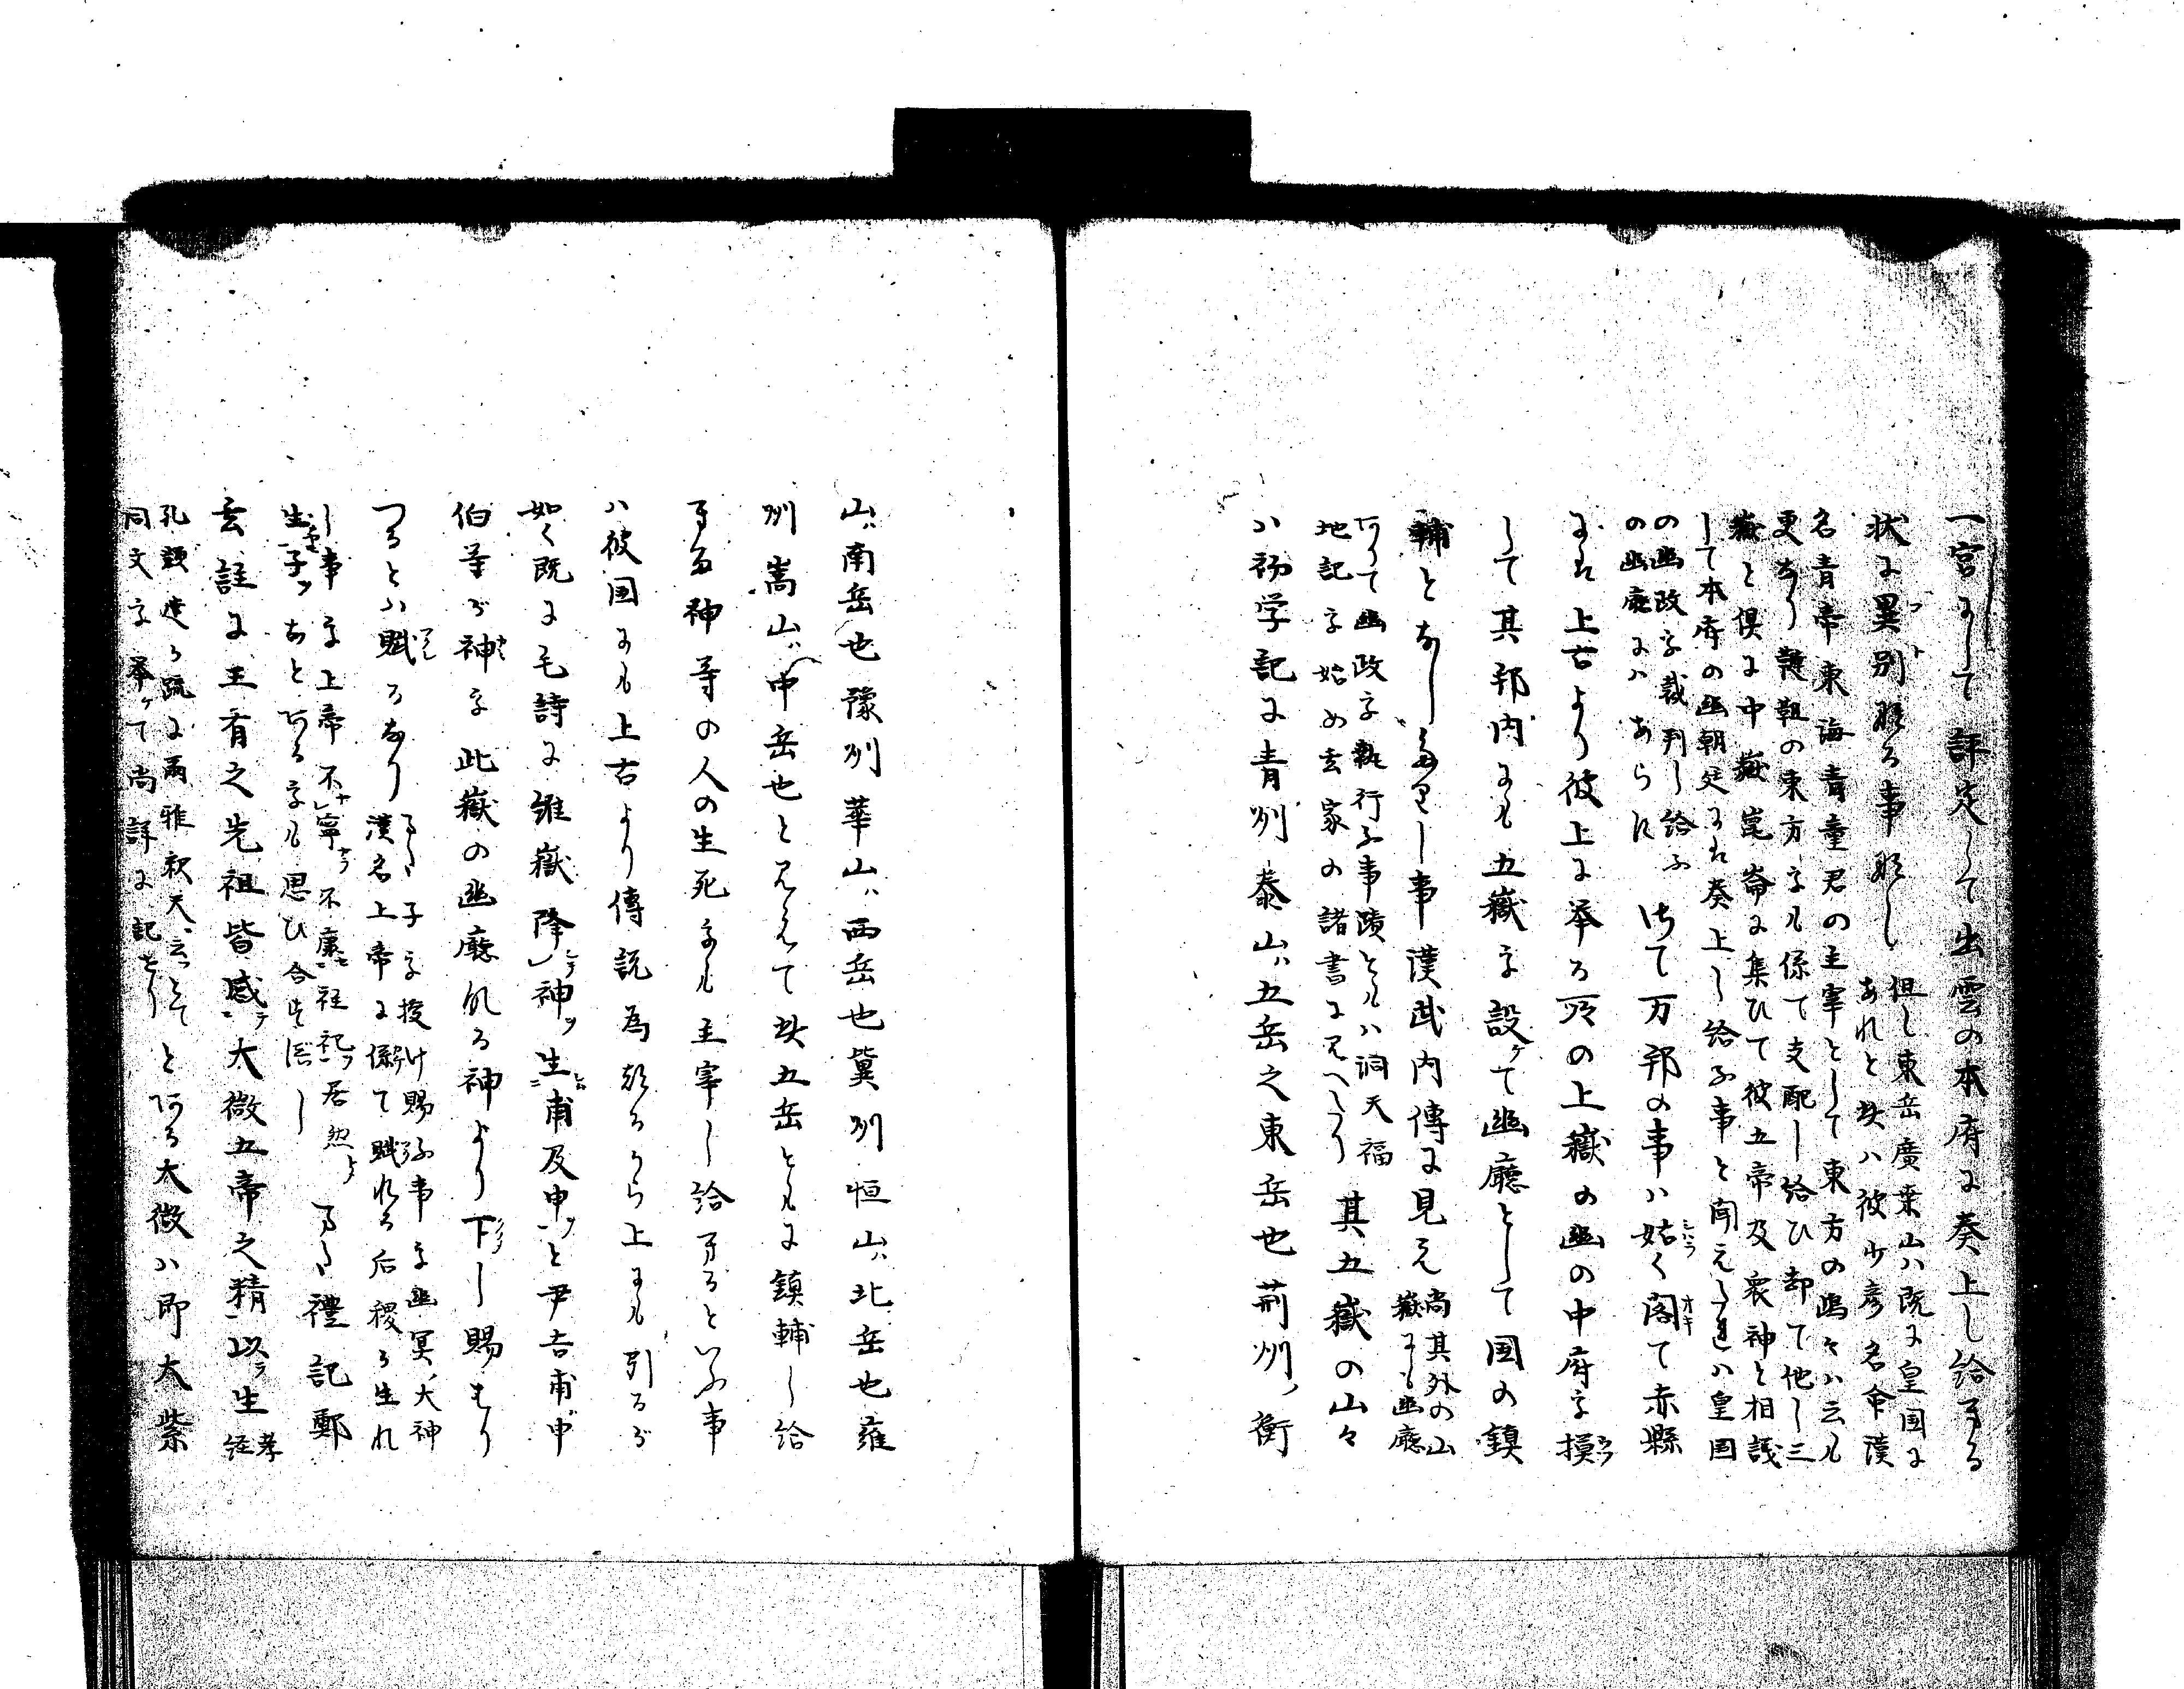 一宮にして評定して出雲の本府に奏上し給へる
状に異別なる事なし
但し東岳廣桑山ハ既に皇国に
あれと此ハ彼少彦名命漢
名青帝東海青童君の主宰として東方の嶋々ハ云も
更なり赤縣の東方をも係て支配し給ひ却て他し三
嶽と倶に中嶽崑崙に集ひて彼五帝及衆神と相議
して本府の幽朝廷にハ奏上し給ふ事と聞えたれハ皇国
の幽政を裁判し給ふ
の幽廳にハあらす
さて万邦の事ハ姑く閣て赤縣
にハ上古より彼上に举る所の上嶽の幽の中府を摸
して其邦内にも五嶽を設けて幽廳として国の鎮
輔となしたりし事漢武内傳に見え
尚其外の山
嶽にも幽廳
ありて幽政を執行ふ事蹟ともハ洞天福
地記を始め玄家の諸書に見へたり
其五嶽の山々
ハ初学記に青州泰山ハ五岳之東岳也荊州ノ衡
山ハ南岳也豫州華山ハ西岳也冀州恒山ハ北岳也雍
州嵩山ハ中岳也と見えて此五岳ともに鎮輔し給
へる神等の人の生死をも主宰し給へるといふ事
ハ彼国にも上古より傳説為たるから上にも引るが
如く既に毛詩に維嶽降レ神ヲ生二甫及申一ヲと尹吉甫が申
伯等が神を此嶽の幽廳なる神より下し賜はり
つるとハ賦るなり
子を授け賜ふ事を幽冥ノ大神
漢名上帝に係て賦れる后稷ノ生れ
し事を上帝不レ寧不レ康二禋祀一ヲ居然
生レ子ヲなとあるをも思ひ合すへし
禮記鄭
玄註に王者之先祖皆感二大微五帝之精一以テ生
孝
経
孔頴達ノ疏に爾雅釈天ニ云とて
同文を举ケて尚詳に記せり
とある大微ハ即大紫